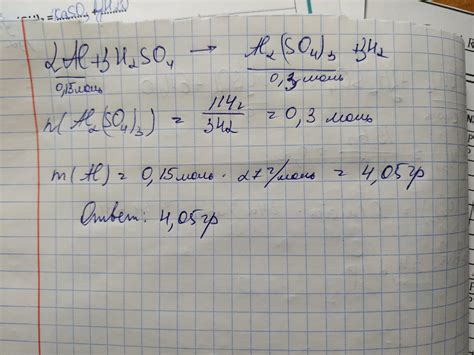 2Al+3H₂SO₄ → Al₂(SO₄)₃ +3H₂
0,15моль 0,3 моль
n(Al₂(SO₄)₃) = 114г/342 = 0,3 моль
m(Al) = 0,15моль · 27г/моль = 4,05гр
Ответ: 4,05гр